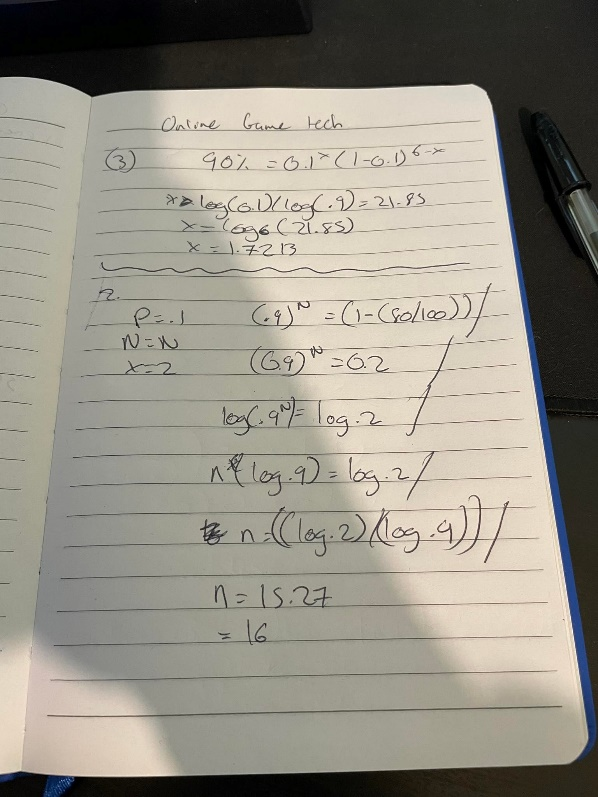 Online Game tech
(3) 90% = 0.1^x (1-0.1)^6-x
x = log(0.1)/log(.9) = 21.85
x = log6(21.85)
x = 1.7213
2.
P = .1 (.9)^N = (1-(80/100))/
N = N
x = 2 (0.9)^N = 0.2 /
log(.9^N) = log.2 /
n*(log.9) = log.2 /
n = ((log.2)/(log.9)) /
n = 15.27
= 16